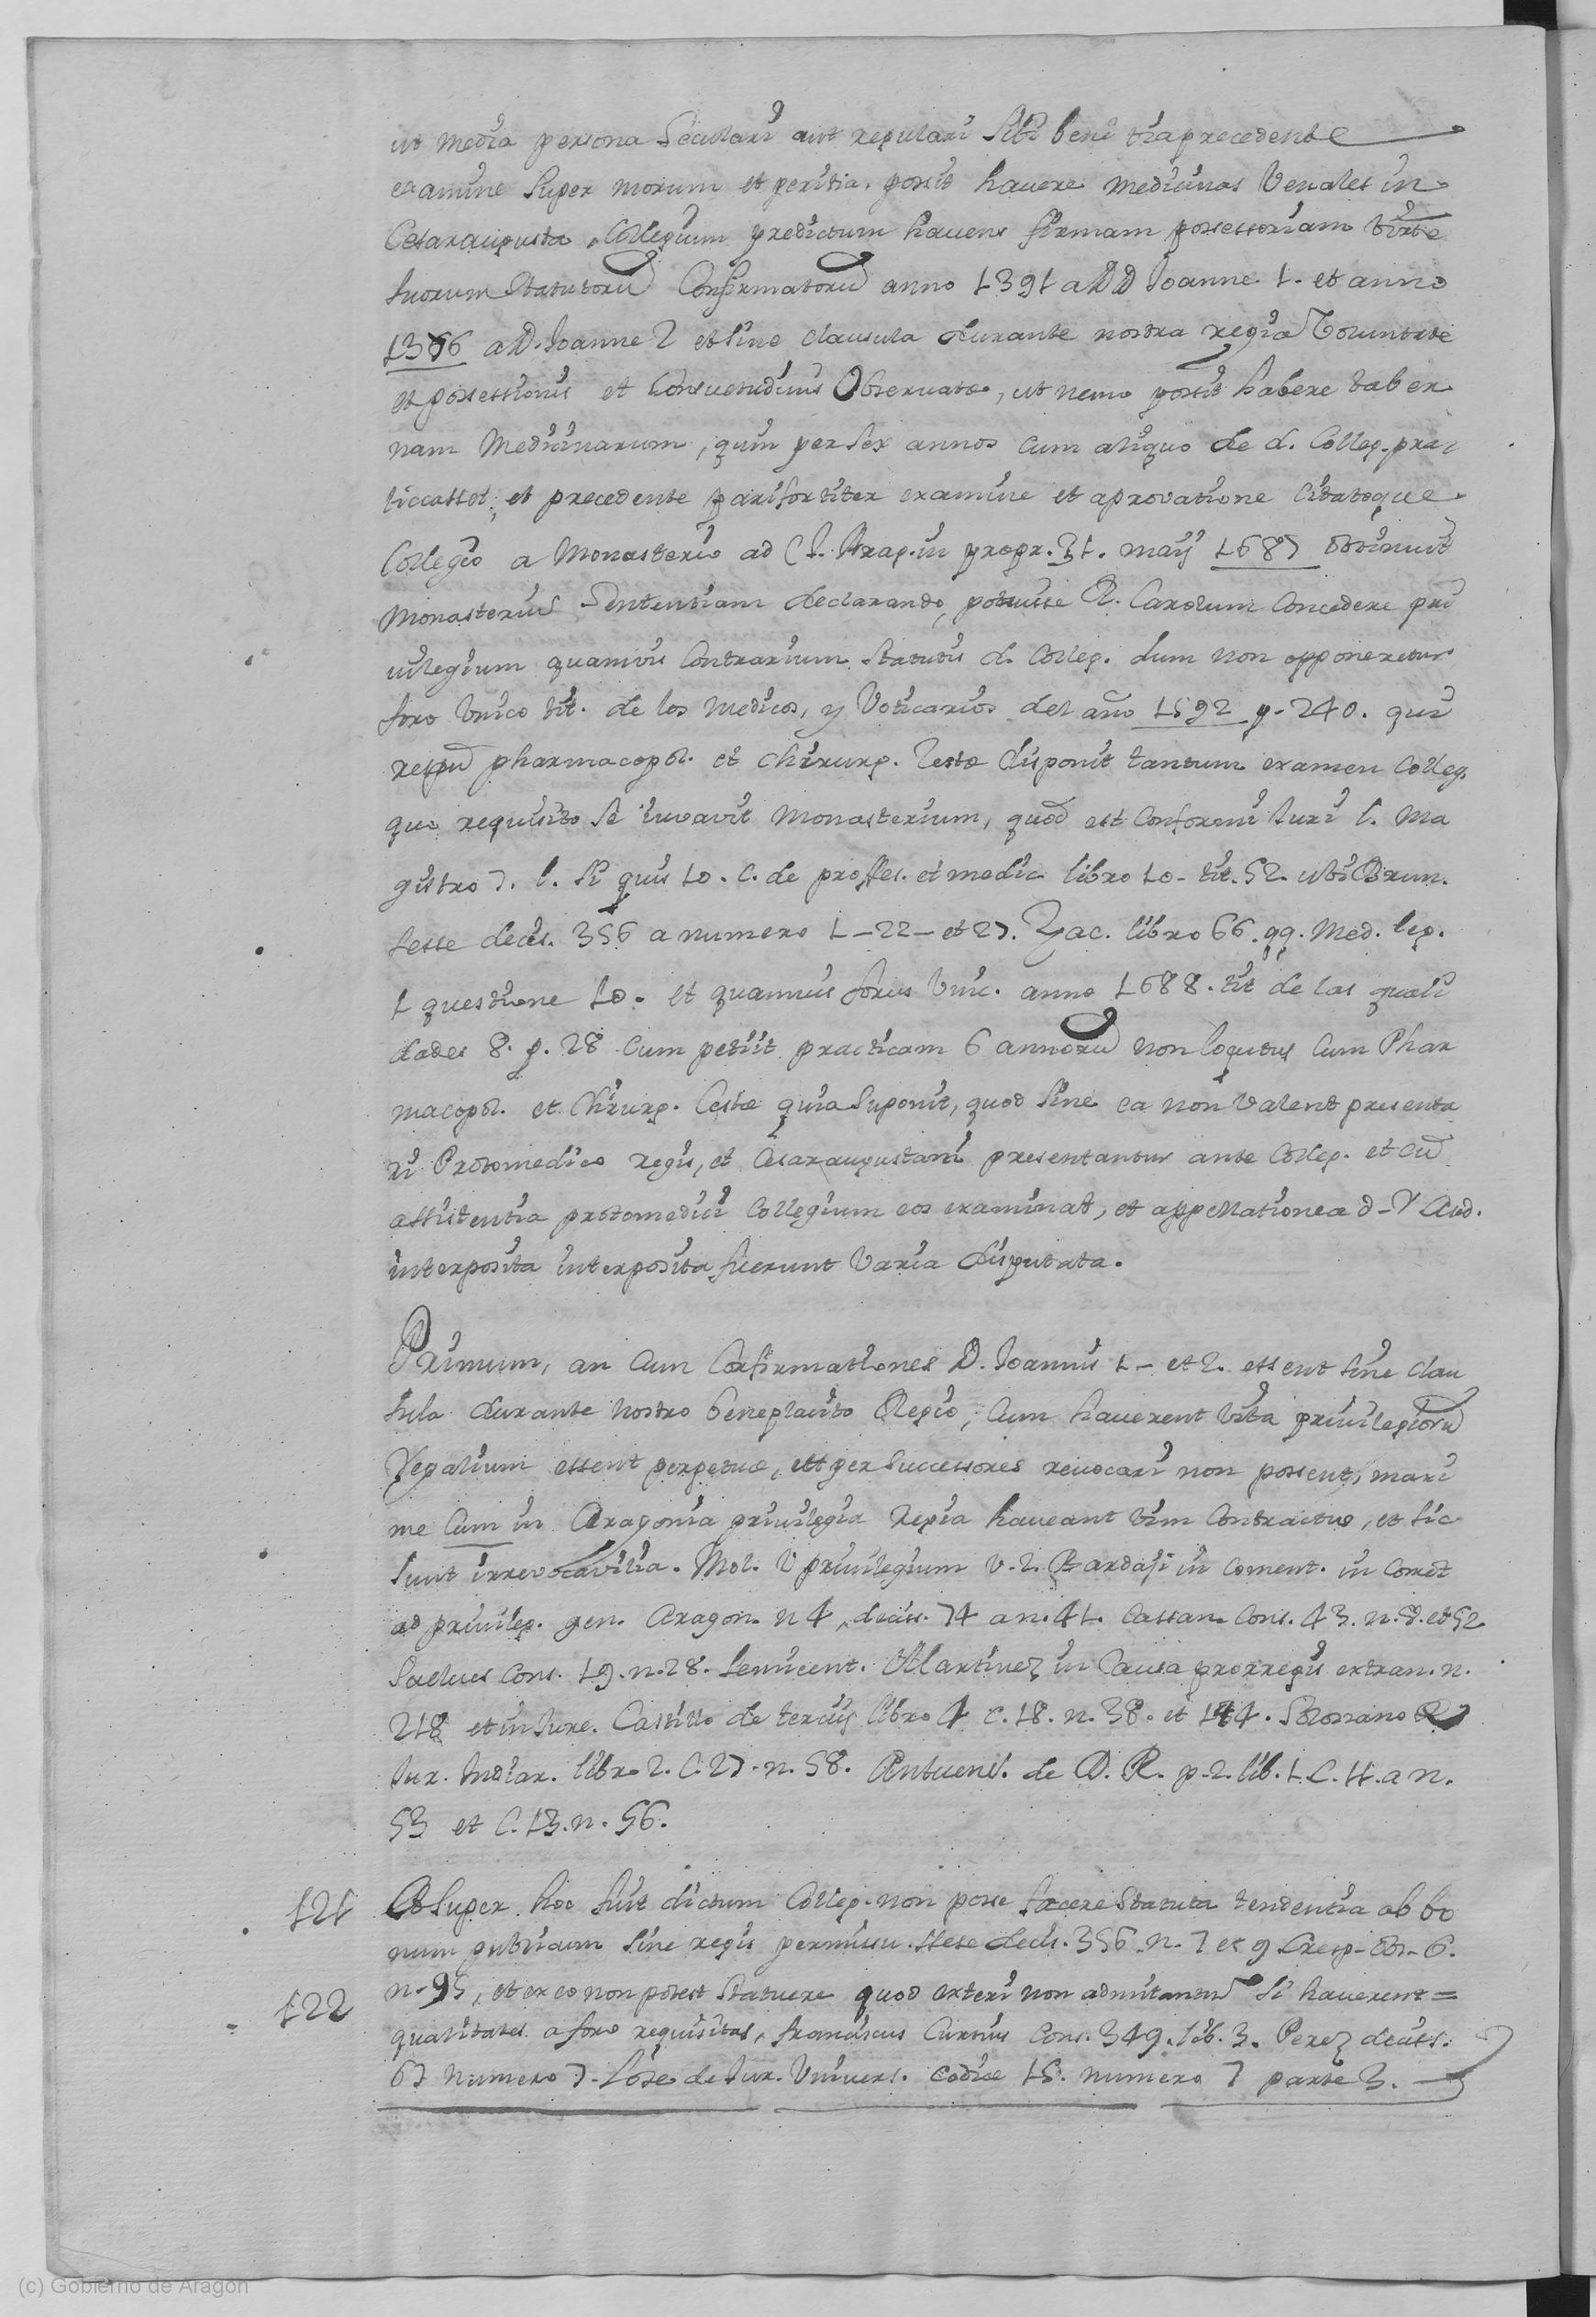 ut media persona Seculari aut regulari sibi bene precedente
examine super morum et peritia, possit havere medicinas Venales in
Cesaraugusta, Collegium predictum havens firmam possessoriam virte
suorum Statutorũ Confirmatorũ anno 1391 a DD Joanne 1. et anno
1366 a D. Joanne 2 et sine clausula durante nostra regia Voluntate
et possessionis et Consuetudinis Observatæ, ut nemo possit habere taber
nam Medicinarum, quin per sex annos cum aliquo de d. Colleg. prac
ticasset, et precedente pariformiter examine et aprovatione Citatoque
Collegio a Monasterio ad C. J. Arag. in propr. 31. maij 1687 obtinuit
Monasterius Sententiam declarando, potuisse R. Carolum Concedere pri
uilegium quamvis Contrarium Statutis d. Colleg. dum non opponeretur
foro Unico tit. de los Medicos, y Voticarios del año 1592 p. 240. qui
respũ pharmacopol. et Chirurg. Cestæ disponit tantum examen Colleg.
quo requisito se iuvavit Monasterium, quod est Conforme Juri l. Ma
gistro 7. l. Si quis 10. C. de profes. et medic. libro 10. tit. 52. ubi Brun.
Sesse decis. 356 a numero 1 - 22 - et 27. Zac. libro 66. qq. Med. leg.
1 questione 10. et quamvis forus Unic. anno 1688. tit de las quali
dades 8. p. 28 Cum petiit practicam 6 annorũ non loquitus Cum Phar
macopol. et Chirurg. Cestæ quia suponit, quod sine ea non Valent presenta
ri Protomedico regis, et Cesaraugustani presentantur ante Colleg. et Cũ
assistentia protomedici Collegium eos examinat, et appellatione ad R Aud.
interposita interposita fuerunt Varia disputata.
Primum, an Cum Confirmationes D. Joannis 1 - et 2. essent sine clau
sula durante Nostro beneplacito Regio, Cum haverent vita privilegiorũ
Regalium essent perpetuæ, et per Successores revocari non possent, maxi
me Cum in Aragonia privilegia Regia haveant vim Contractus, et sic
sunt irrevocavilia. Mol. V privilegium v. 2. Bardaji in Coment. in Comet
ad privileg. gen. Aragon. n 4, decis. 74 a n. 41. Cassan. Cons. 43. n. 8. et 52
Cons. 19. n. 28. Martinez in Causa prorregis extran. n.
218 et in Jure. Castillo de tercijs libro 4 c. 18. n. 38. et 144. Solorzano
Jur. Indiar. libro 2. C. 27. n. 58. Antuens. de D. R. p. 2. lib. 1. C. 11. a n.
53 et C. 13. n. 56.
121 Et super hoc fuit dictum Colleg. non posse facere Statuta tendentia ab bo
num publicum sine regis permissu. Sese decis. 356 n. 7 et 9 Cresp. obs. 6.
122 n. 95, et ex eo non potest Statuere quod exteri non admitantur si haverent =
qualitates a foro requisitas, franciscus Curtius Cons. 349. lib. 3. Perez decis.
67 Numero 7. de Jur. Univers. codice 15. numero 7 parte 3.